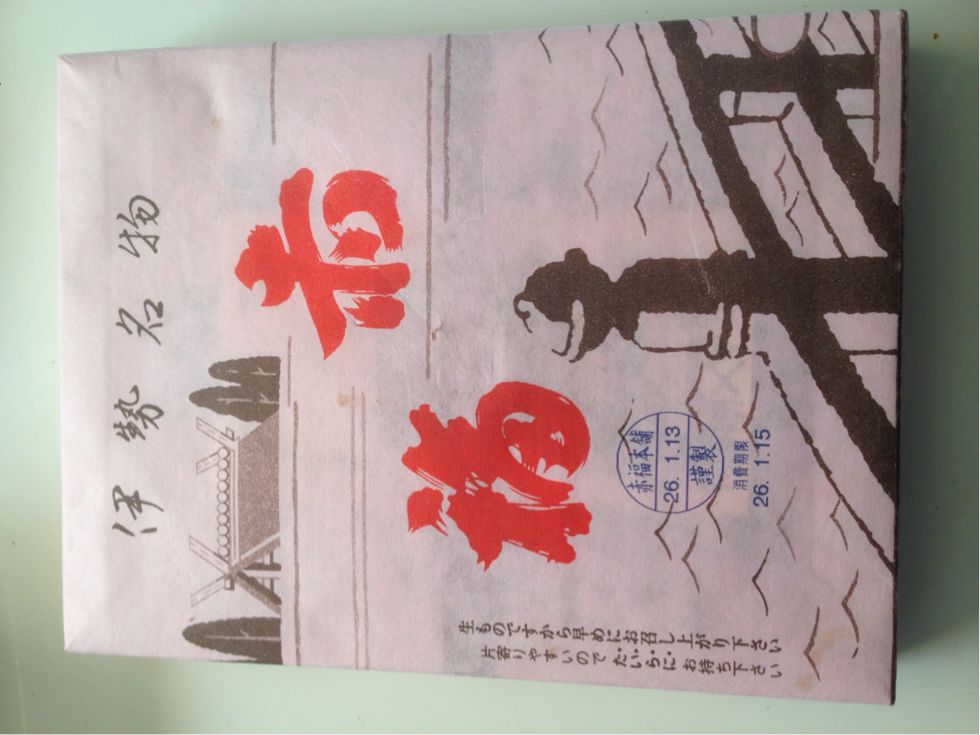 伊勢名物
赤福
赤福本舗
26. 1.13
謹製
消費期限
26. 1.15
生ものですから早めにお召し上がり下さい
片寄りやすいのでたいらにお持ち下さい